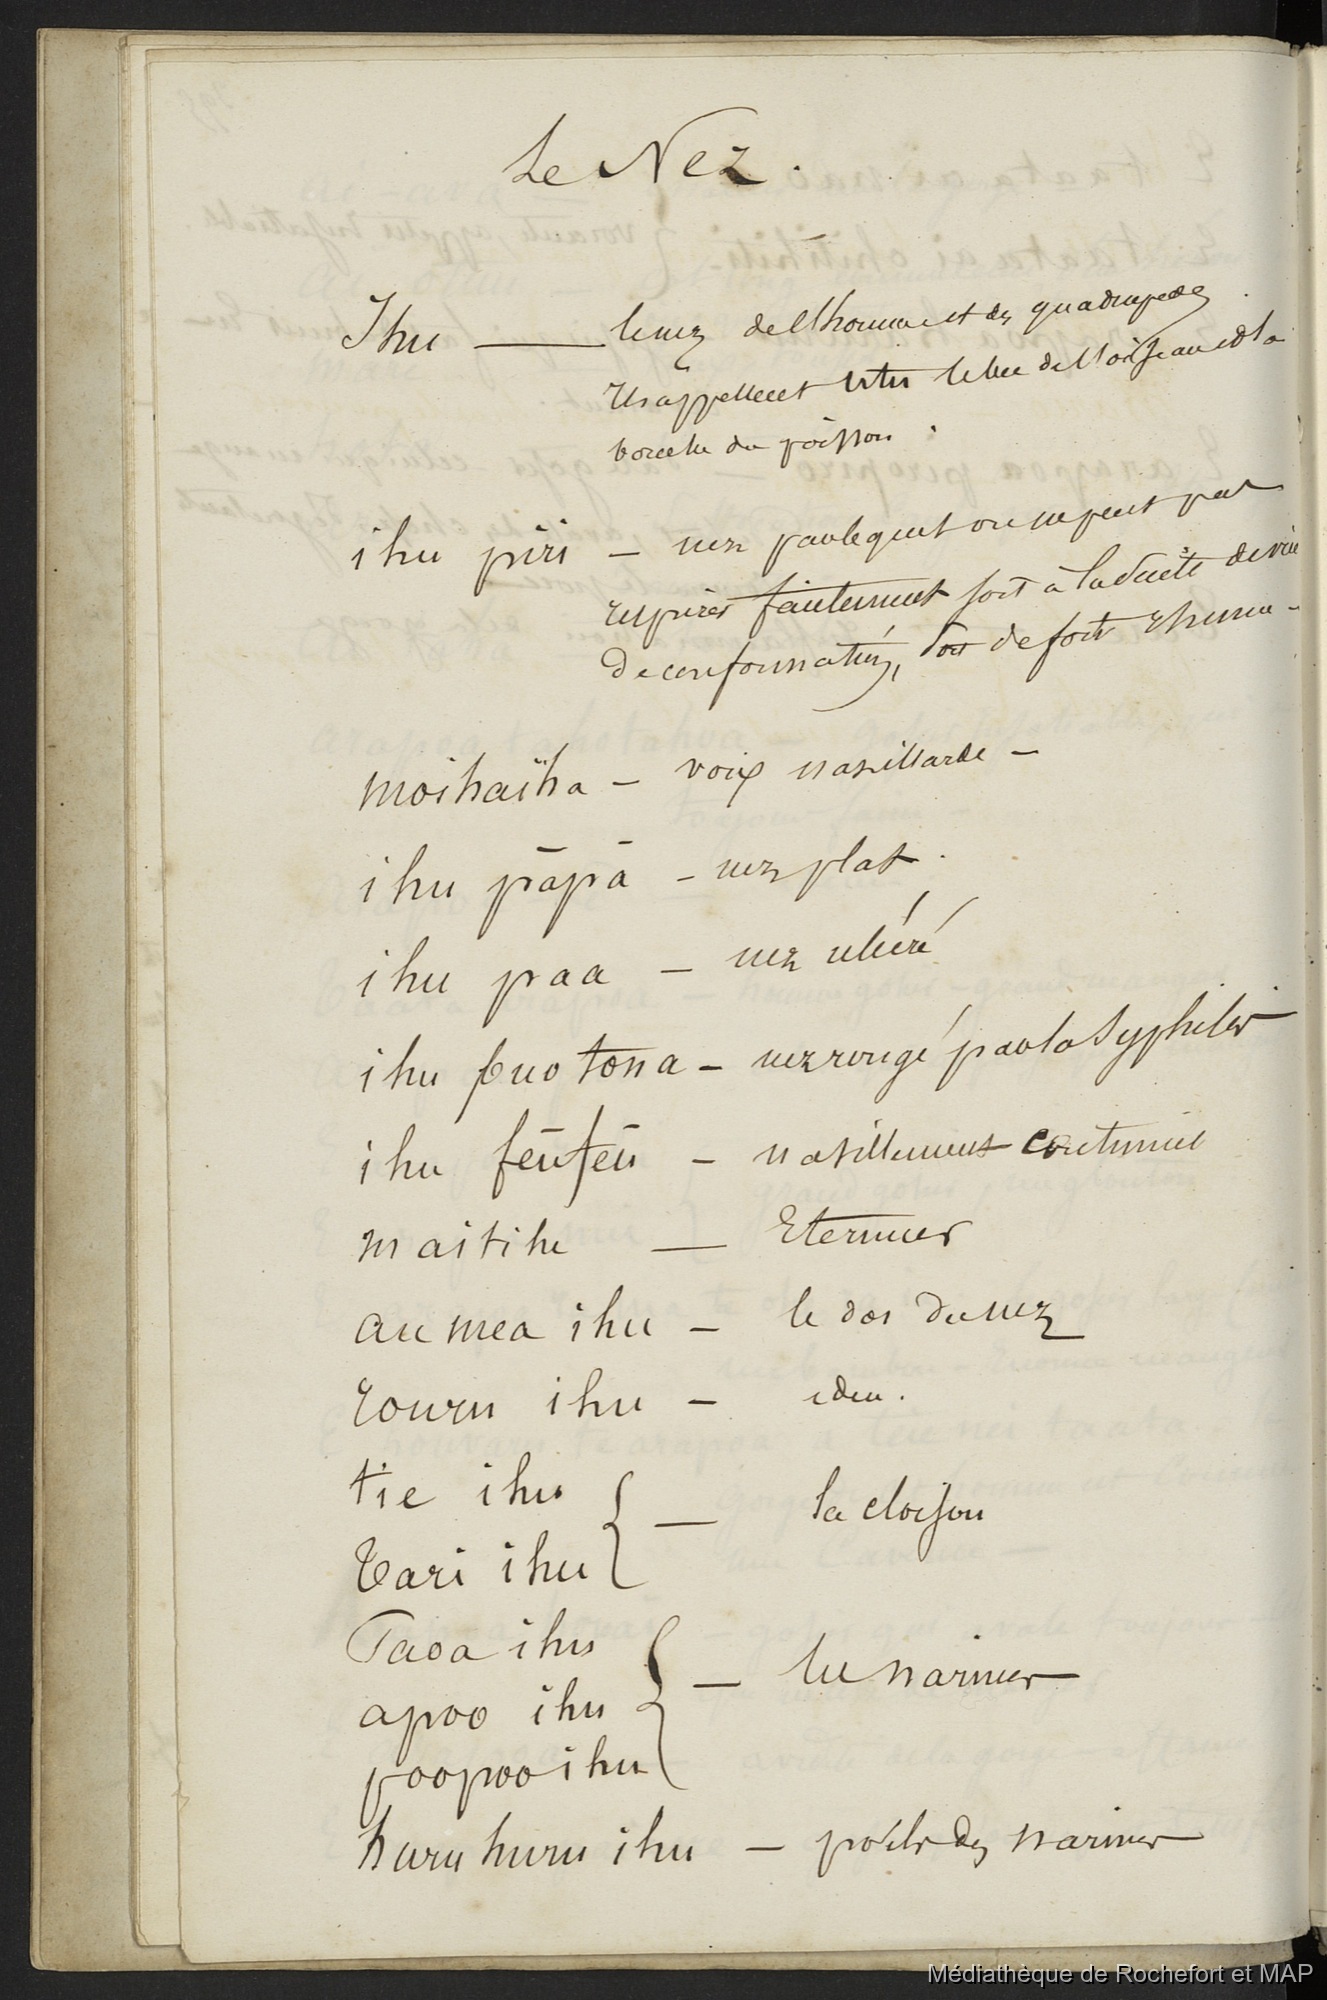 Le Nez.
Ihu — le nez de l'homme et des quadrupedes
Ils appellent utu le bec de l'oiseau et la
bouche du poisson.
ihu piri — nez par lequel on ne peut pas
respirer facilement soit à la suite de vice
de conformation, soit de fort rhume -
moihaïha — voix nasillarde —
ihu pāpā — nez plat.
ihu paa — nez ulcéré
ihu puo tona — nez rongé par la syphilis
ihu fēūfēū — nasillement continuel
maitihe — Eternuer
aumea ihu — le dos du nez
rouru ihu — idem.
tie ihu
tari ihu } — la cloison
Taoa ihu
apoo ihu } — les narines
poopoo ihu
huru huru ihu — poils des narines
Médiathèque de Rochefort et MAP